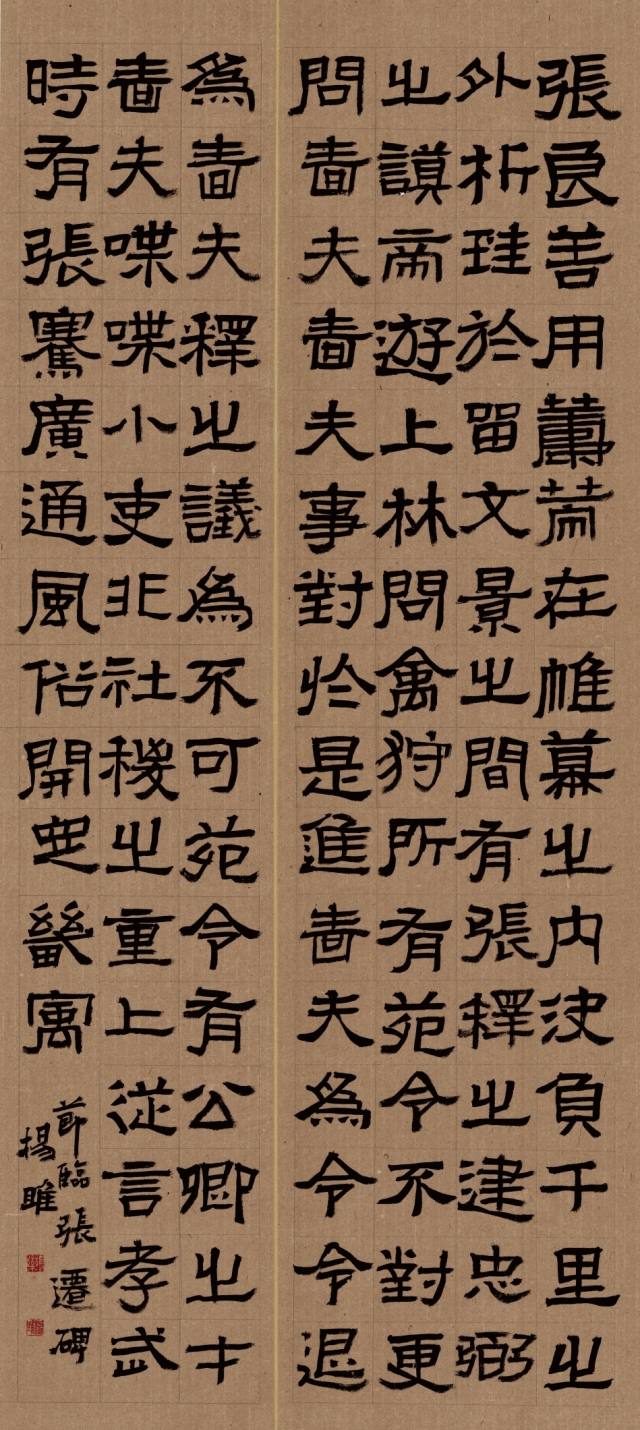 張良善用籌策在帷幕之内決負千里之
外析珪於留文景之間有張釋之建忠弼
之謨帝遊上林問禽狩所有苑令不對更
問嗇夫嗇夫事對於是進嗇夫為令令退
為嗇夫釋之議為不可苑令有公卿之才
嗇夫喋喋小吏非社稷之重上從言孝武
時有張騫廣通風俗開定畿寓
節臨張遷碑
楊雎